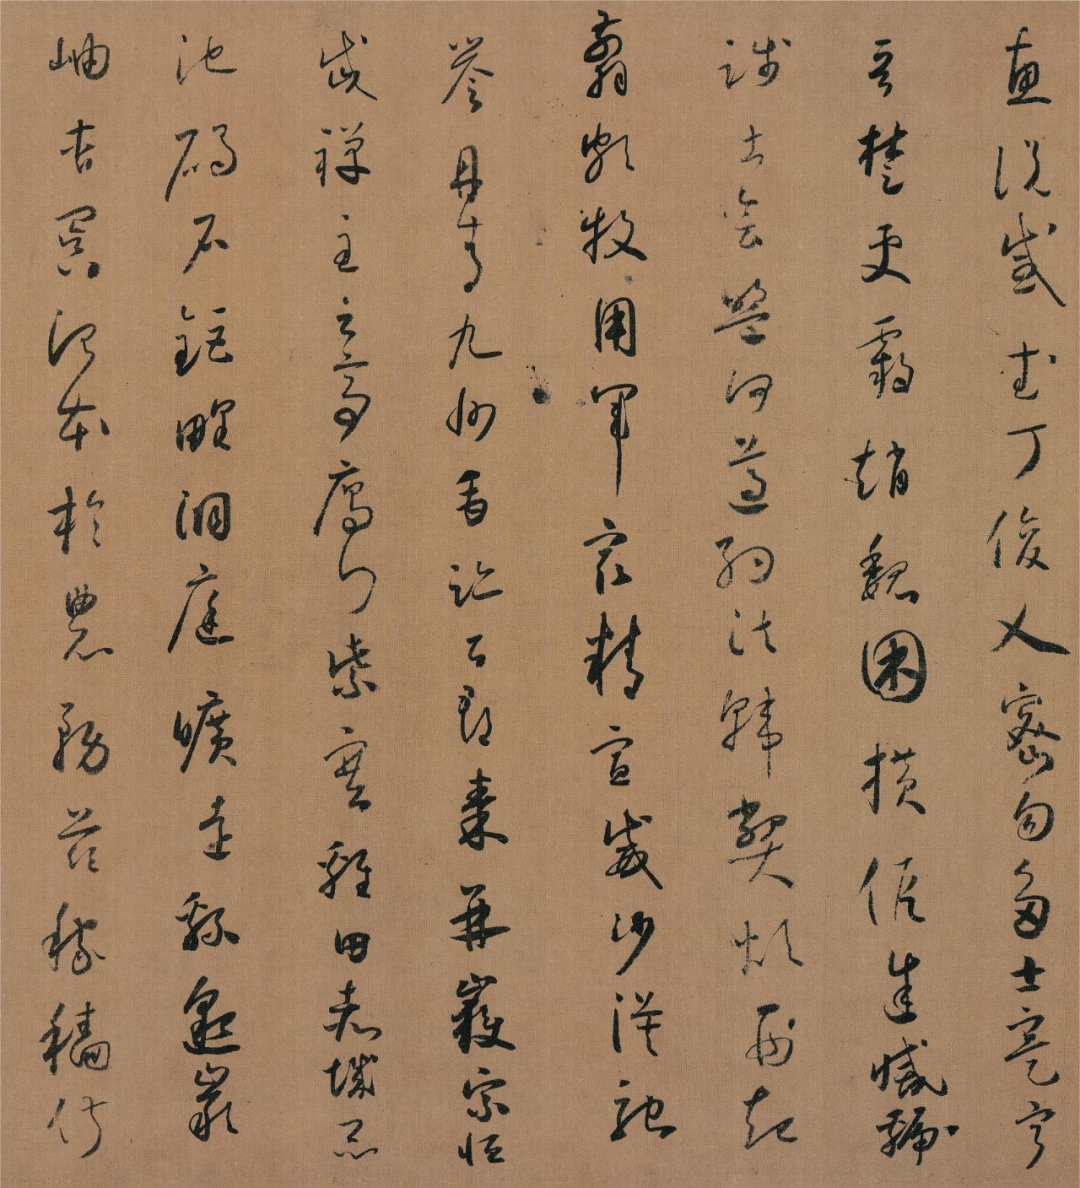 惠說感武丁俊乂密勿多士寔寧
晉楚更霸趙魏困橫假途滅虢
踐土會盟何遵約法韓弊煩刑起
翦頗牧用軍最精宣威沙漠馳
譽丹青九州禹跡百郡秦并嶽宗恒
岱禪主云亭鴈門紫塞雞田赤城昆
池碣石鉅野洞庭曠遠緜邈巖
岫杳冥治本於農務茲稼穡俶